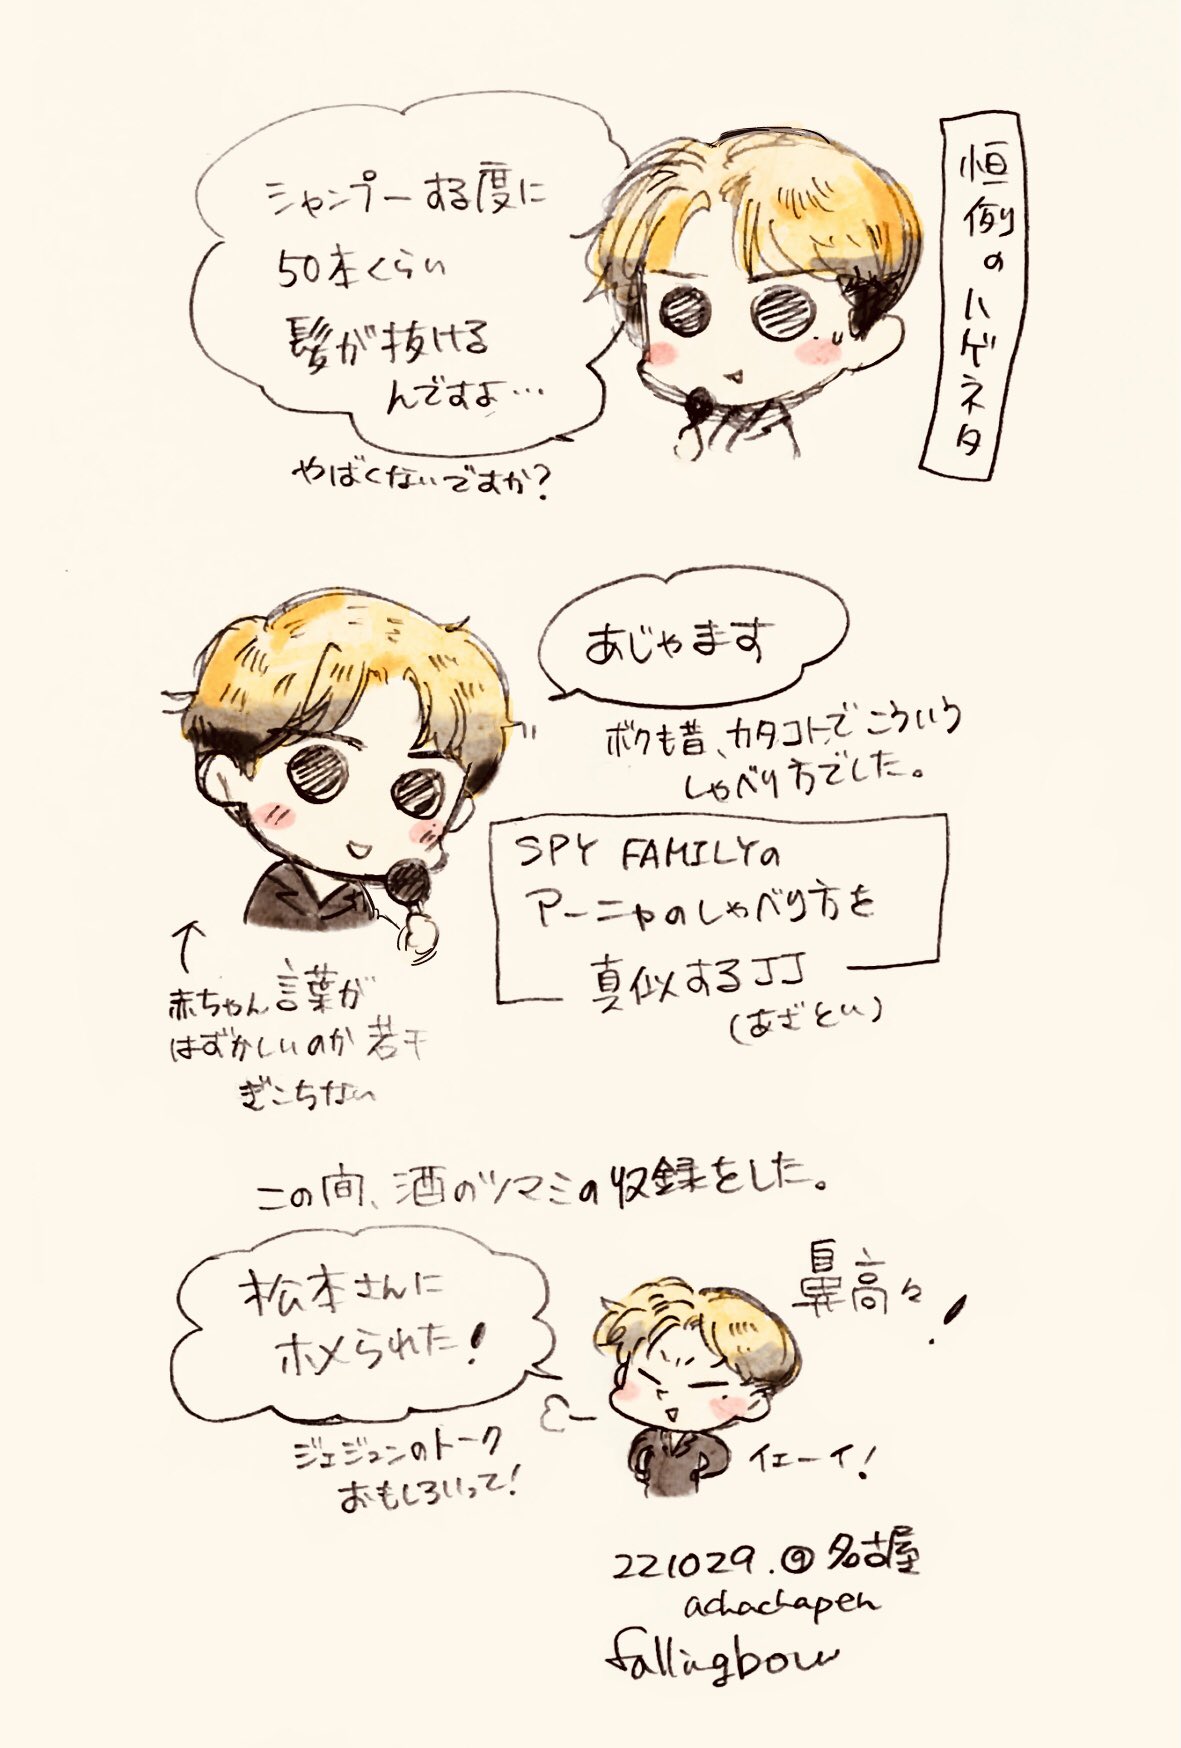 恒例のハゲネタ
シャンプーする度に
50本くらい
髪が抜ける
んですよ…
やばくないですか?
あじゃます
ボクも昔、カタコトでこういう
しゃべり方でした。
SPY FAMILYの
アーニャのしゃべり方を
真似するJJ
(あざとい)
↑
赤ちゃん言葉が
はずかしいのか若干
ぎこちない
この間、酒のツマミの収録をした。
松本さんに
ホメられた!
ジェジュンのトーク
おもしろいって!
鼻高々!
イエーイ!
221029.@名古屋
achachapen
fallingbow